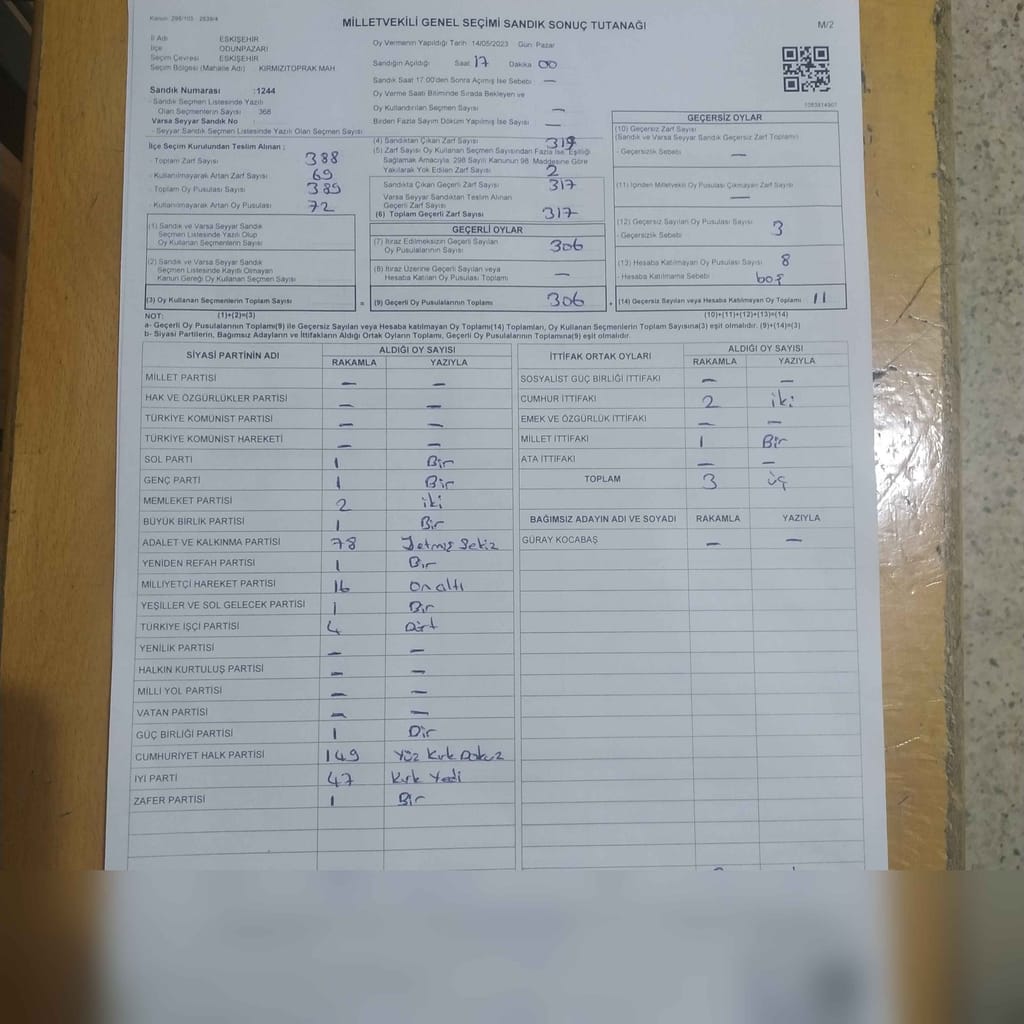 Kanun: 298/105 - 2839/4
MİLLETVEKİLİ GENEL SEÇİMİ SANDIK SONUÇ TUTANAĞI
M/2
İl Adı ESKİŞEHİR
İlçe ODUNPAZARI
Seçim Çevresi ESKİŞEHİR
Seçim Bölgesi (Mahalle Adı) KIRMIZITOPRAK MAH
Sandık Numarası :1244
- Sandık Seçmen Listesinde Yazılı
Olan Seçmenlerin Sayısı 368
Varsa Seyyar Sandık No
- Seyyar Sandık Seçmen Listesinde Yazılı Olan Seçmen Sayısı
Oy Vermenin Yapıldığı Tarih 14/05/2023 Gün Pazar
Sandığın Açıldığı Saat 17 Dakika 00
Sandık Saat 17.00'den Sonra Açmış İse Sebebi —
Oy Verme Saati Bitiminde Sırada Bekleyen ve
Oy Kullandırılan Seçmen Sayısı —
Birden Fazla Sayım Döküm Yapılmış İse Sayısı —
1083814901
İlçe Seçim Kurulundan Teslim Alınan ;
- Toplam Zarf Sayısı 388
- Kullanılmayarak Artan Zarf Sayısı 69
- Toplam Oy Pusulası Sayısı 389
- Kullanılmayarak Artan Oy Pusulası 72
(1) Sandık ve Varsa Seyyar Sandık
Seçmen Listesinde Yazılı Olup
Oy Kullanan Seçmenlerin Sayısı
(2) Sandık ve Varsa Seyyar Sandık
Seçmen Listesinde Kayıtlı Olmayan
Kanun Gereği Oy Kullanan Seçmen Sayısı
(3) Oy Kullanan Seçmenlerin Toplam Sayısı =
(4) Sandıktan Çıkan Zarf Sayısı 319
(5) Zarf Sayısı Oy Kullanan Seçmen Sayısından Fazla İse, Eşitliği
Sağlamak Amacıyla, 298 Sayılı Kanunun 98. Maddesine Göre
Yakılarak Yok Edilen Zarf Sayısı 2
Sandıkta Çıkan Geçerli Zarf Sayısı 317
Varsa Seyyar Sandıktan Teslim Alınan
Geçerli Zarf Sayısı
(6) Toplam Geçerli Zarf Sayısı 317
GEÇERLİ OYLAR
(7) İtiraz Edilmeksizin Geçerli Sayılan
Oy Pusulalarının Sayısı 306
(8) İtiraz Üzerine Geçerli Sayılan veya
Hesaba Katılan Oy Pusulası Toplamı —
(9) Geçerli Oy Pusulalarının Toplamı 306 +
GEÇERSİZ OYLAR
(10) Geçersiz Zarf Sayısı
(Sandık ve Varsa Seyyar Sandık Geçersiz Zarf Toplamı)
- Geçersizlik Sebebi —
(11) İçinden Milletvekili Oy Pusulası Çıkmayan Zarf Sayısı
—
(12) Geçersiz Sayılan Oy Pusulası Sayısı 3
- Geçersizlik Sebebi
(13) Hesaba Katılmayan Oy Pusulası Sayısı 8
- Hesaba Katılmama Sebebi boş
(14) Geçersiz Sayılan veya Hesaba Katılmayan Oy Toplamı 11
NOT: (1)+(2)=(3)
(10)+(11)+(12)+(13)=(14)
a- Geçerli Oy Pusulalarının Toplamı(9) ile Geçersiz Sayılan veya Hesaba katılmayan Oy Toplamı(14) Toplamları, Oy Kullanan Seçmenlerin Toplam Sayısına(3) eşit olmalıdır. (9)+(14)=(3)
b- Siyasi Partilerin, Bağımsız Adayların ve İttifakların Aldığı Ortak Oyların Toplamı, Geçerli Oy Pusulalarının Toplamına(9) eşit olmalıdır.
SİYASİ PARTİNİN ADI ALDIĞI OY SAYISI
RAKAMLA YAZIYLA
MİLLET PARTİSİ — —
HAK VE ÖZGÜRLÜKLER PARTİSİ — —
TÜRKİYE KOMÜNİST PARTİSİ — —
TÜRKİYE KOMÜNİST HAREKETİ — —
SOL PARTİ 1 Bir
GENÇ PARTİ 1 Bir
MEMLEKET PARTİSİ 2 iki
BÜYÜK BİRLİK PARTİSİ 1 Bir
ADALET VE KALKINMA PARTİSİ 78 Yetmiş Sekiz
YENİDEN REFAH PARTİSİ 1 Bir
MİLLİYETÇİ HAREKET PARTİSİ 16 on altı
YEŞİLLER VE SOL GELECEK PARTİSİ 1 Bir
TÜRKİYE İŞÇİ PARTİSİ 4 Dört
YENİLİK PARTİSİ — —
HALKIN KURTULUŞ PARTİSİ — —
MİLLİ YOL PARTİSİ — —
VATAN PARTİSİ — —
GÜÇ BİRLİĞİ PARTİSİ 1 Bir
CUMHURİYET HALK PARTİSİ 149 Yüz Kırk Dokuz
İYİ PARTİ 47 Kırk Yedi
ZAFER PARTİSİ 1 Bir
İTTİFAK ORTAK OYLARI ALDIĞI OY SAYISI
RAKAMLA YAZIYLA
SOSYALİST GÜÇ BİRLİĞİ İTTİFAKI — —
CUMHUR İTTİFAKI 2 iki
EMEK VE ÖZGÜRLÜK İTTİFAKI — —
MİLLET İTTİFAKI 1 Bir
ATA İTTİFAKI — —
TOPLAM 3 üç
BAĞIMSIZ ADAYIN ADI VE SOYADI RAKAMLA YAZIYLA
GÜRAY KOCABAŞ — —